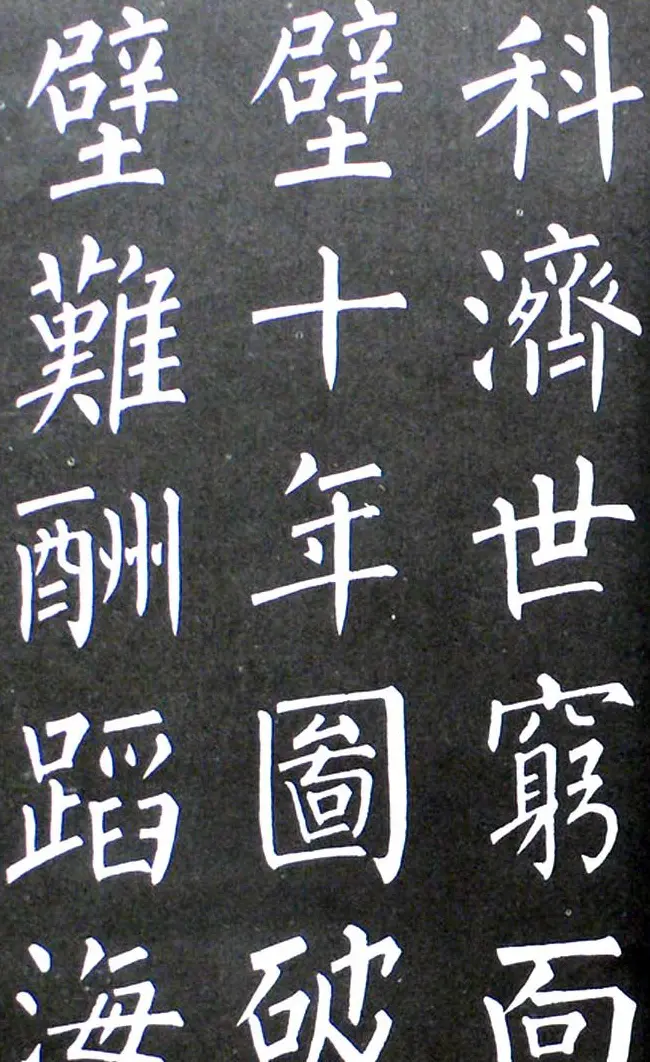 科濟世窮面
壁十年圖破
壁難酬蹈海